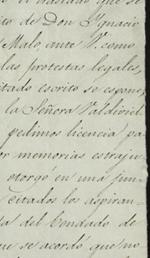 to de Don Ignacio
Malo, ante V. como
las protestas legales,
citado escrito se espone
la Señora Valdiviel
pedimos licencia pa
or memorias estraju
otorgó en una jun
citados los aspiran
a del Condado de
que se acordó que no